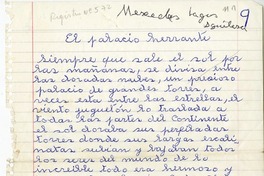 Mercedes Lagos
Aguilera
9
El palacio errante
Siempre que sale el sol por
las mañanas, se divisa entre
las doradas nubes, un precioso
palacio de grandes torres, a
veces esta entre las estrellas, el
viento juguetón lo traslada a
todas las partes del Continente
el sol doraba sus perfiladas
torres donde sus largas escali
natas subian y bajaban todos
los seres del mundo de lo
increible todo era hermoso y